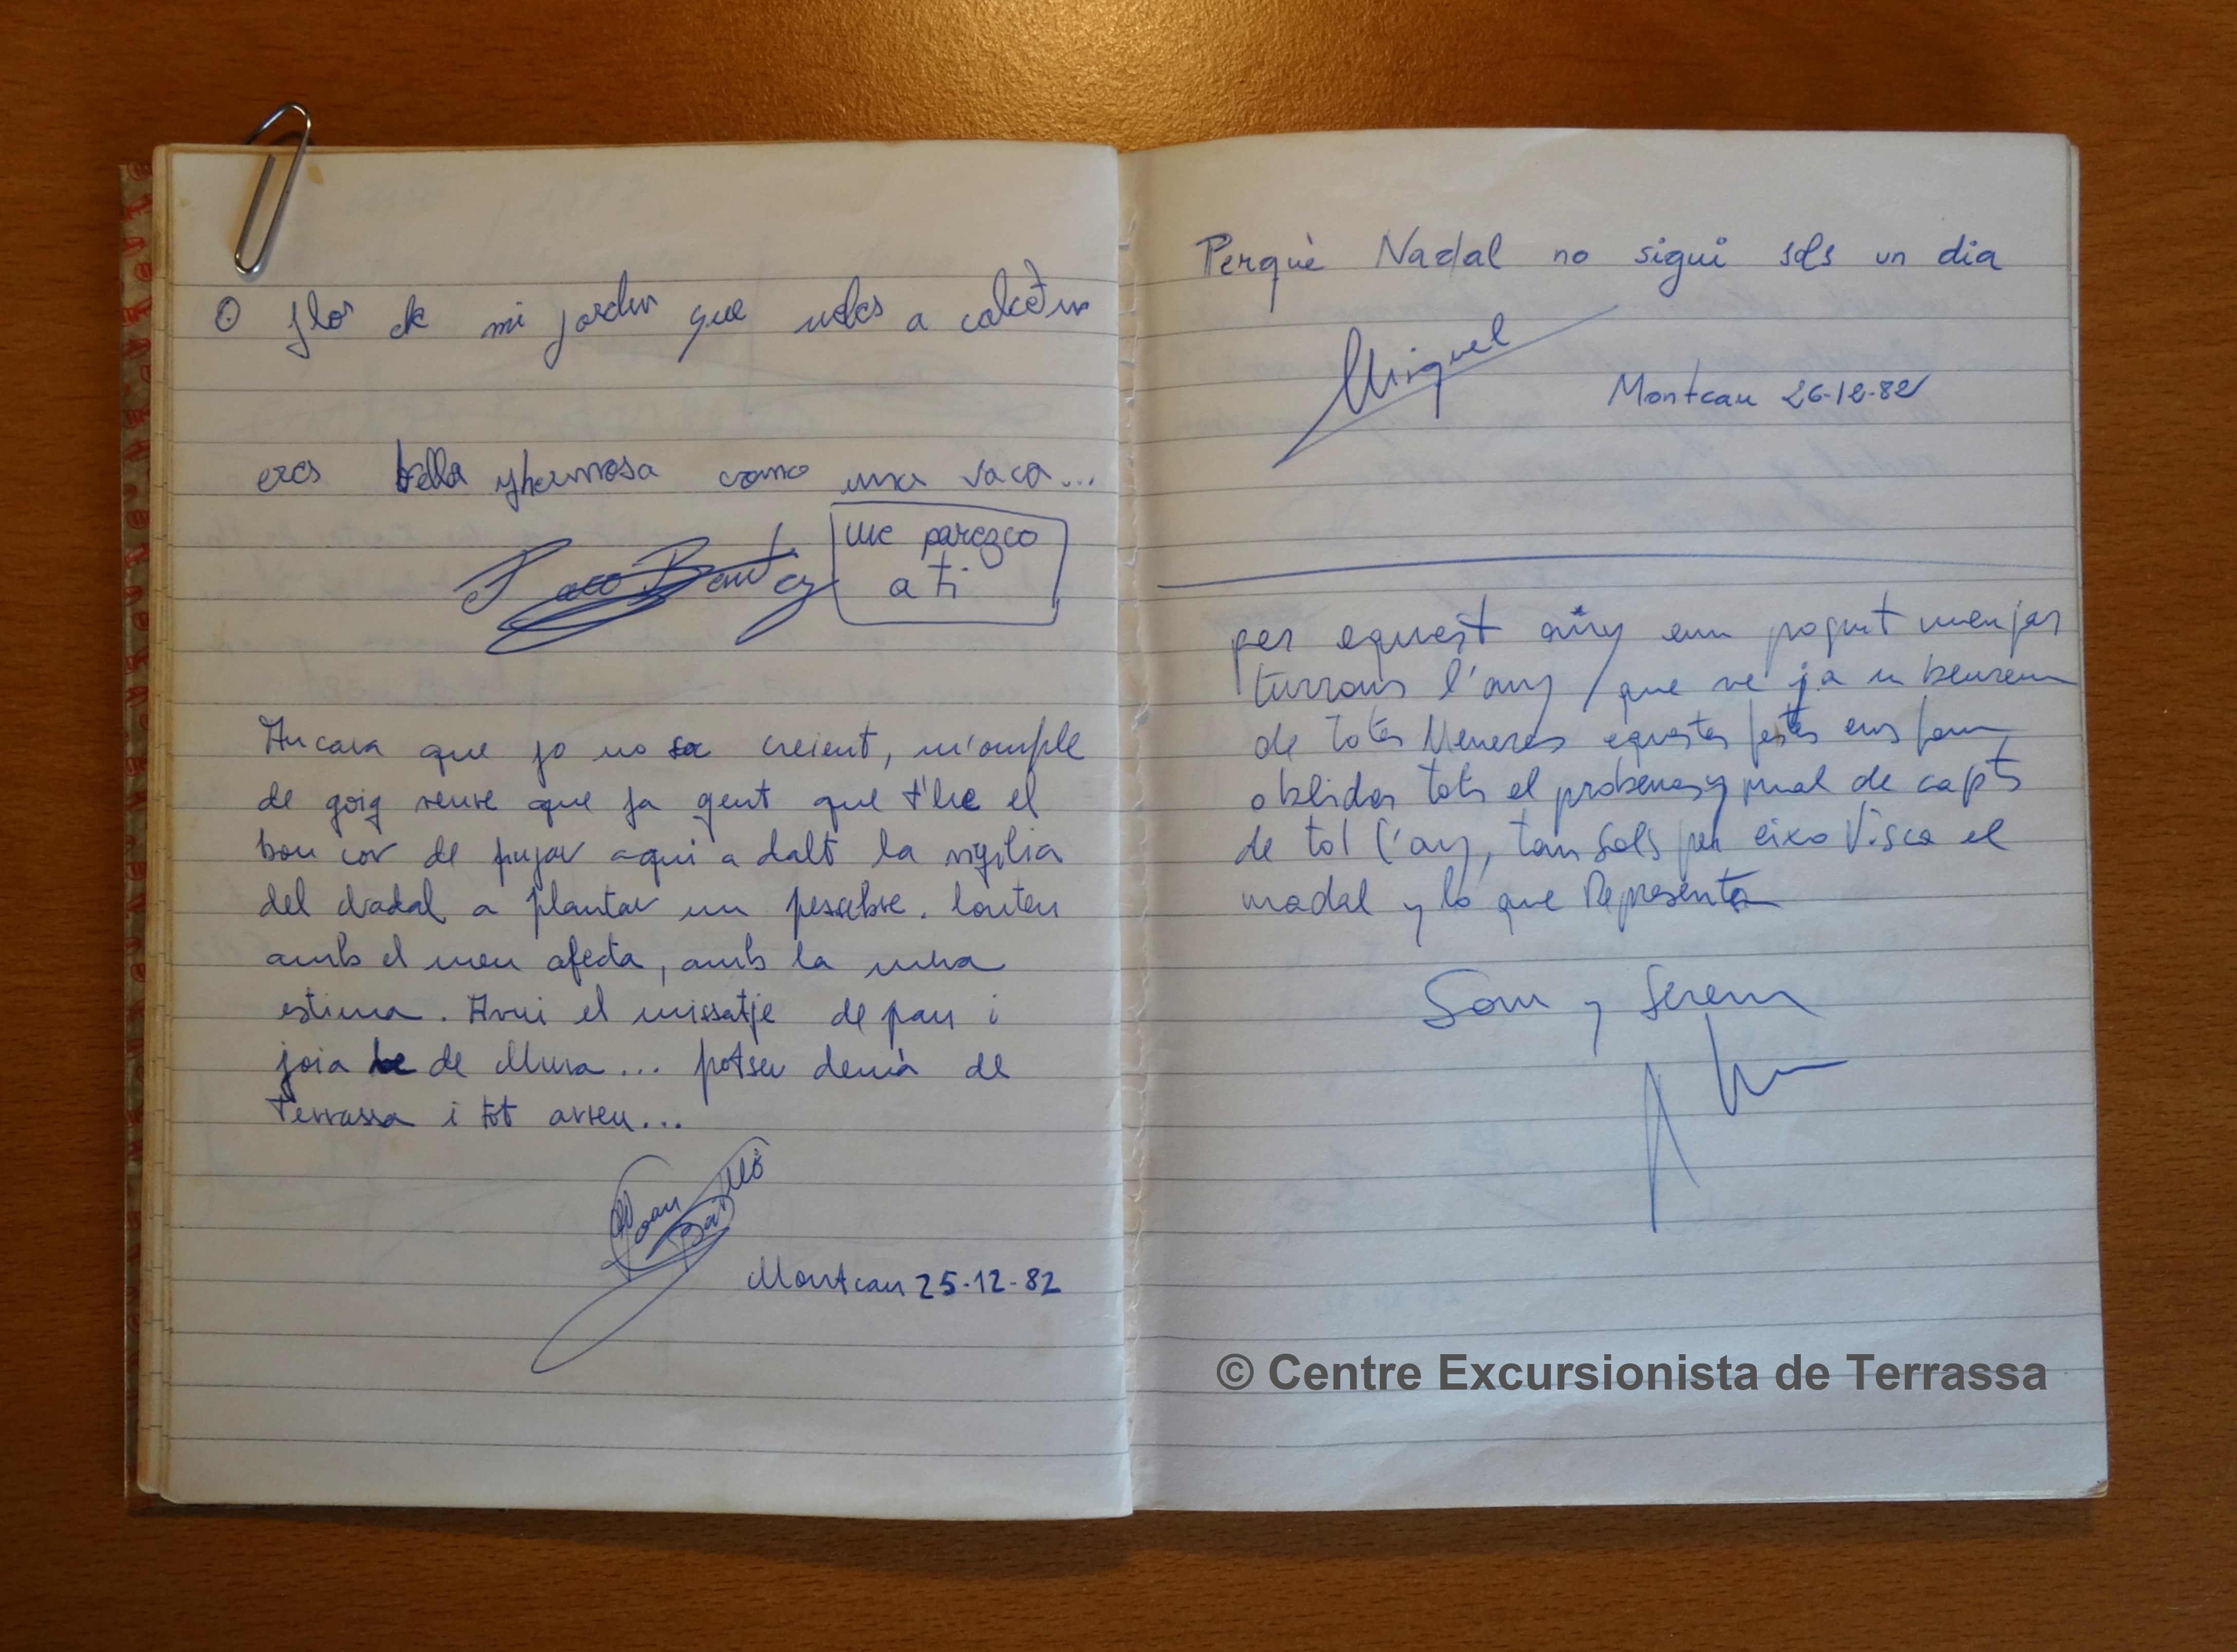 O flor de mi jardin que ueles a calcetin
eres bella y hermosa como una vaca...
me parezco
a ti
Paco Benitez
Ancara que jo no sóc creient, m'omple
de goig veure que ja gent que t'he el
bon cor de pujar aqui a dalt la vigilia
del Nadal a plantar un pesebre. Conteu
amb el meu afecta, amb la meva
estima. Avui el missatje de pau i
joia de Mura... potser demà de
Terrassa i tot arreu...
Joan
Montcau 25-12-82
Perquè Nadal no sigui sols un dia
Miquel
Montcau 26-12-82
per equest any em pogut menjar
turrons l'any que ve ja u beurem
de totes Meneres equestes festes ens fan
oblidar tots el probemes y mal de caps
de tot l'any, tan sols per eixo Visca el
nadal y lo que Representa
Som y Serem
© Centre Excursionista de Terrassa